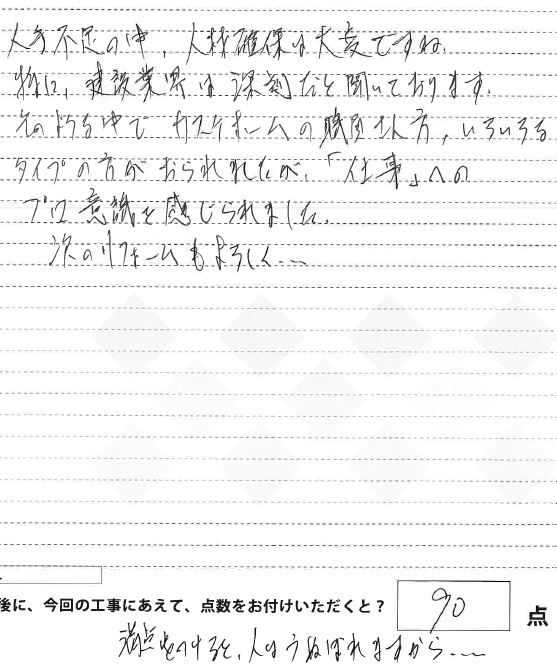 人手不足の中、人材確保は大変ですね。
特に、建設業界は深刻だと聞いております。
そのような中でカスケホームの職員さん方、いろいろな
タイプの方がおられましたが、「仕事」への
プロ意識を感じられました。
次のリフォームもよろしく…
後に、今回の工事にあえて、点数をお付けいただくと？ 90 点
満点をつけると、人はうぬぼれますから…